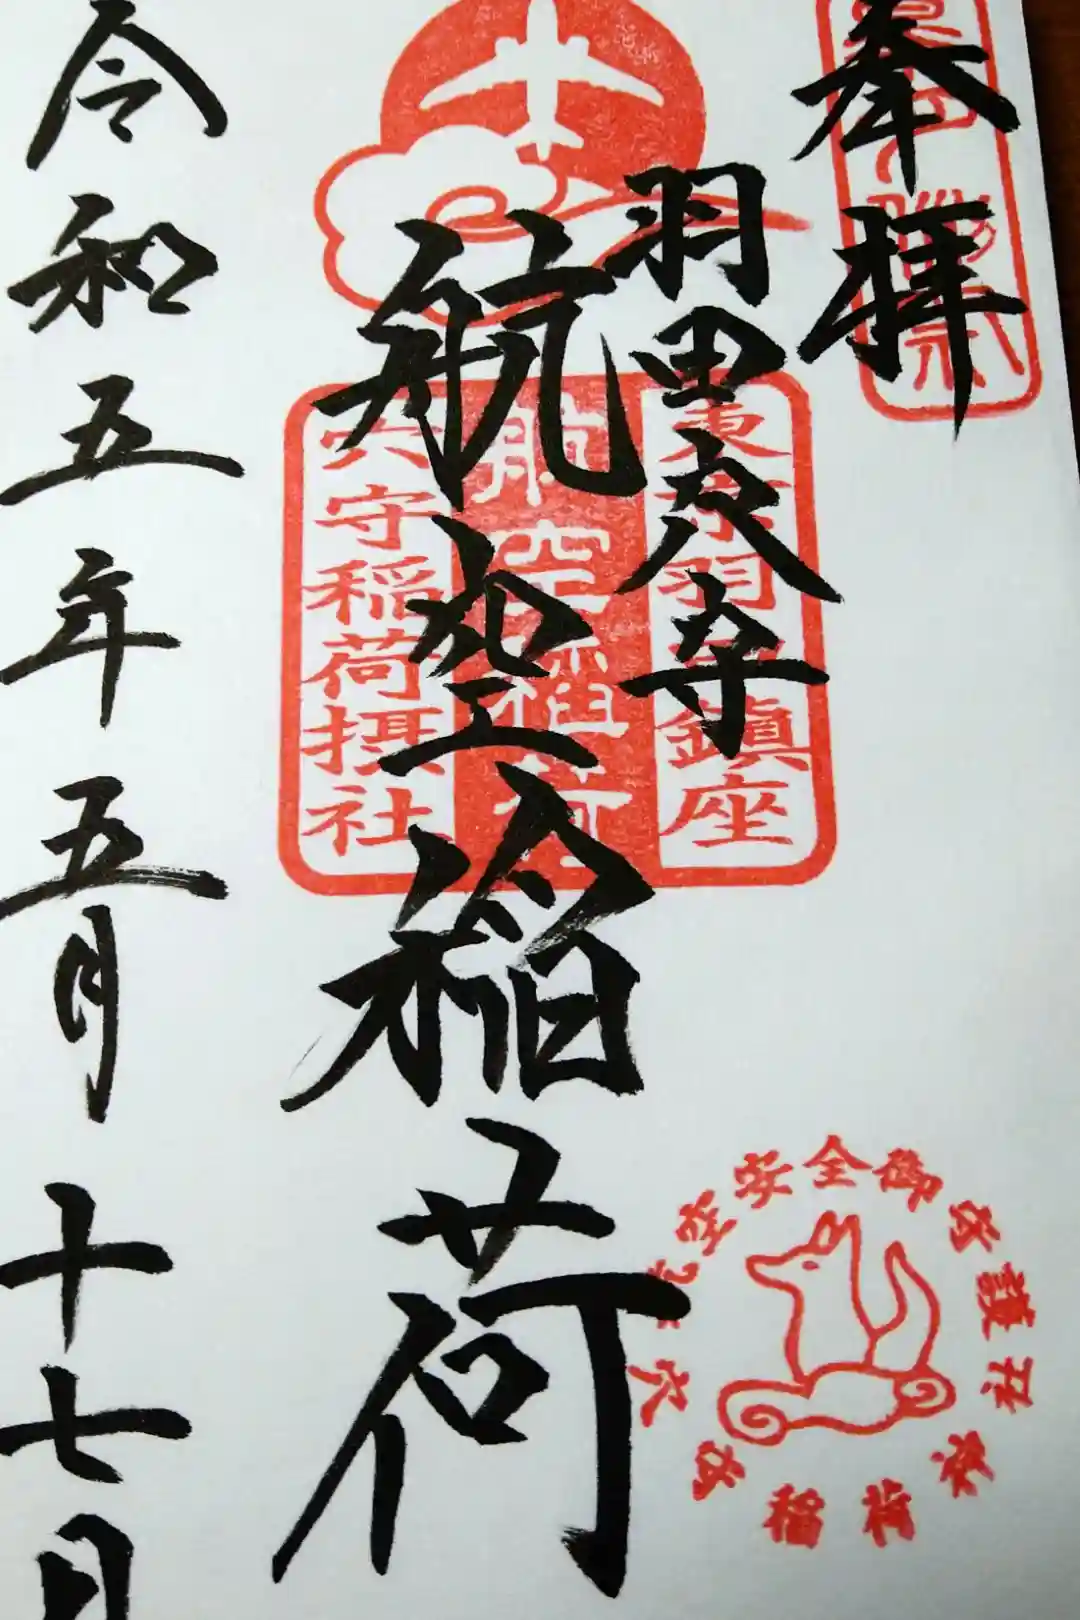 奉拝
羽田穴守
航空稲荷
令和五年五月十七日
東京羽田鎮座
航空稲荷
穴守稲荷摂社
安全御守護
稲荷